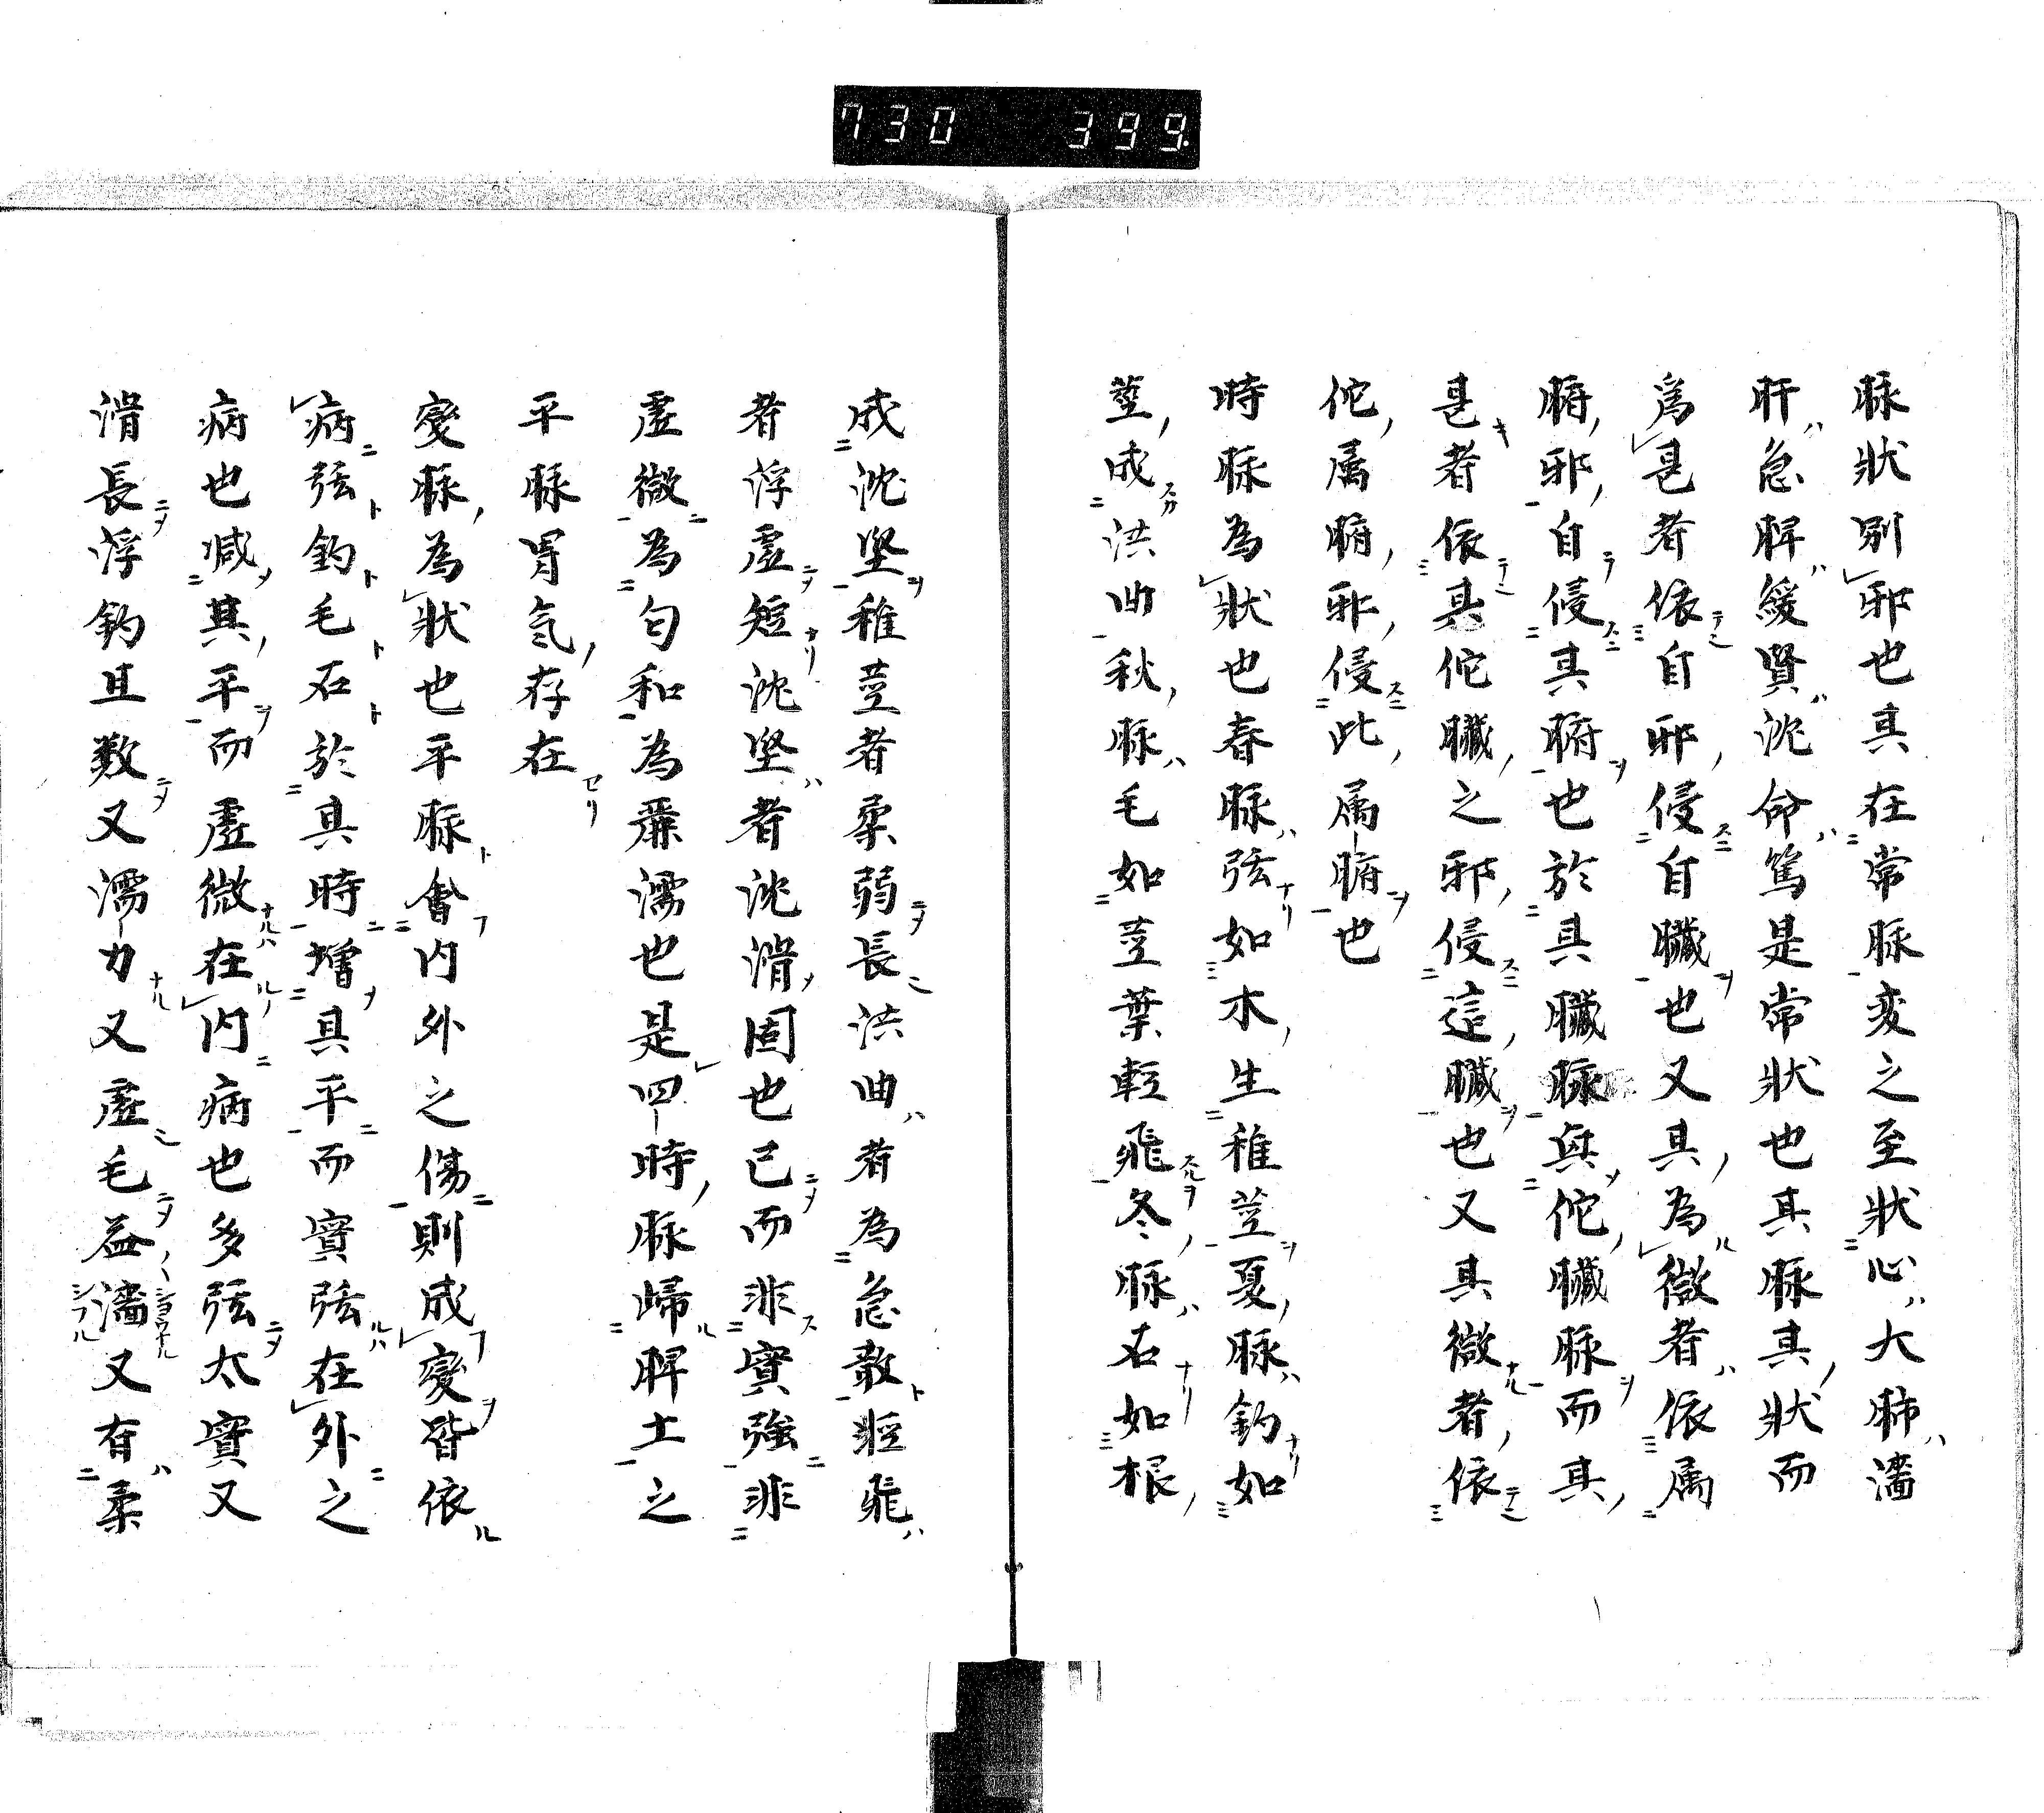 730 399
脉狀別邪也其在常脉変之至狀心大肺濇
肝急脾緩賢沈命篤是常狀也其脉其狀而
為甚者依自邪侵自臟也又其為微者依属
腑邪自侵其腑也於其臟脉與佗臟脉而其
甚者依其佗臟之邪侵這臟也又其微者依
佗属腑邪侵此属腑也
時脉為狀也春脉弦如木生稚莖夏脉鈎如
莖成洪曲秋脉毛如莖葉軽飛冬脉石如根
成沈坚稚莖者柔弱長洪曲者為急敢軽飛
者浮虚短沈坚者沈滑固也已而非實強非
虚微為匀和為藨濡也是四時脉歸脾土之
平脉胃氣存在
變脉為狀也平脉會内外之傷則成變皆依
病弦鈎毛石於其時增其平而實弦在外之
病也减其平而虚微在内病也多弦太實又
滑長浮鈎且数又濡力又虚毛益濇又有柔